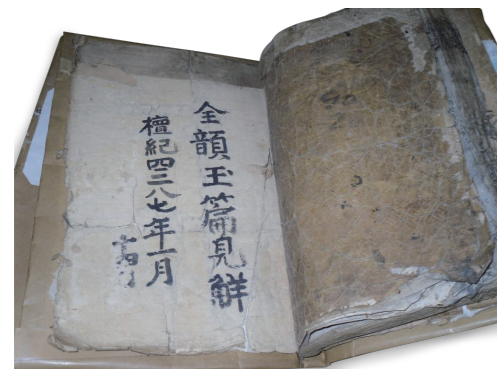 全韻玉篇見鮮
檀紀四二八七年一月